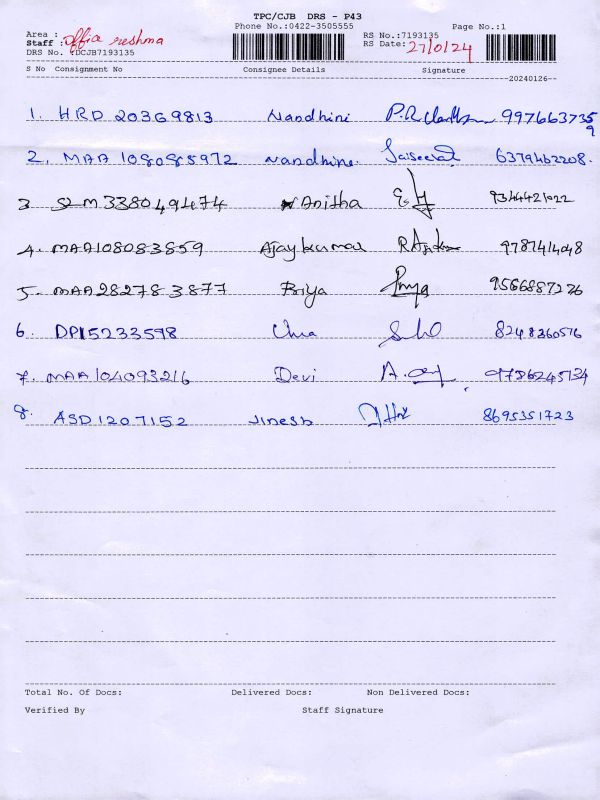 TPC/CJB DRS - P43
Phone No.:0422-3505555 Page No.:1
Area :
Staff : Offia reshma
RS No.:7193135
RS Date: 27/01/24
DRS No. :DCJB7193135
S No Consignment No Consignee Details Signature
20240126
1. HRD 20369813 Nandhini 9976637359
2. MAA 108085972 Nandhine. 6379462208.
3 SLM 3380491474 Anitha 9344421022
4. MAA108083859 Ajaykumar 9787414048
5. MAA282783877 Priya Priya 9566887276
6. DPI5233598 Uma 8248360576
7. MAA104093216 Devi 9786245134
8. ASD1207152 Jinesh 8695351723
Total No. Of Docs: Delivered Docs: Non Delivered Docs:
Verified By Staff Signature